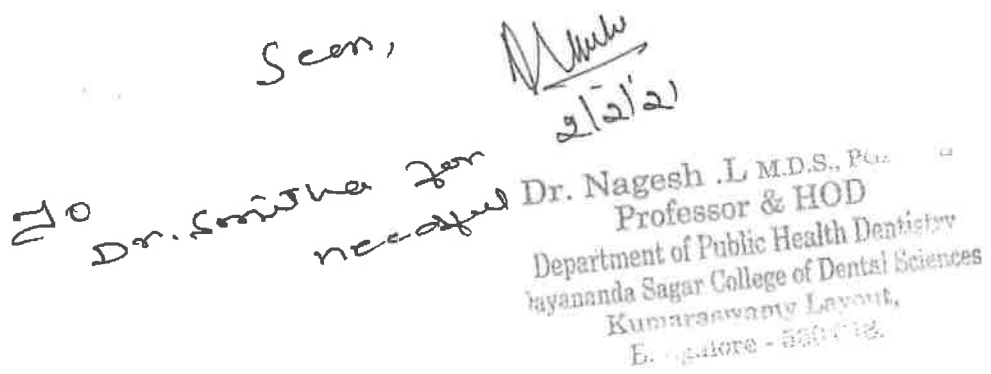 Seen,
2/2/21
To
Dr. Smitha for
needful
Dr. Nagesh .L M.D.S.,
Professor & HOD
Department of Public Health Dentistry
ayananda Sagar College of Dental Sciences
Kumaraswamy Layout,